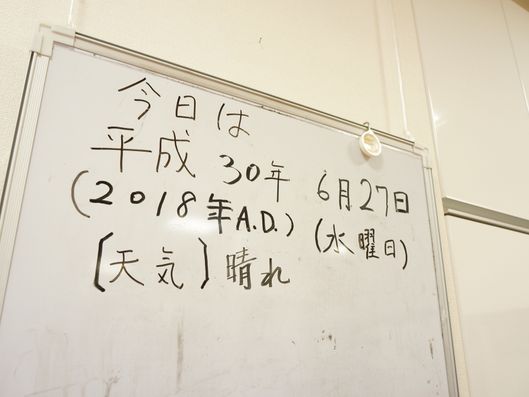 今日は
平成 30年 6月27日
(2018年A.D.) (水曜日)
[天気] 晴れ